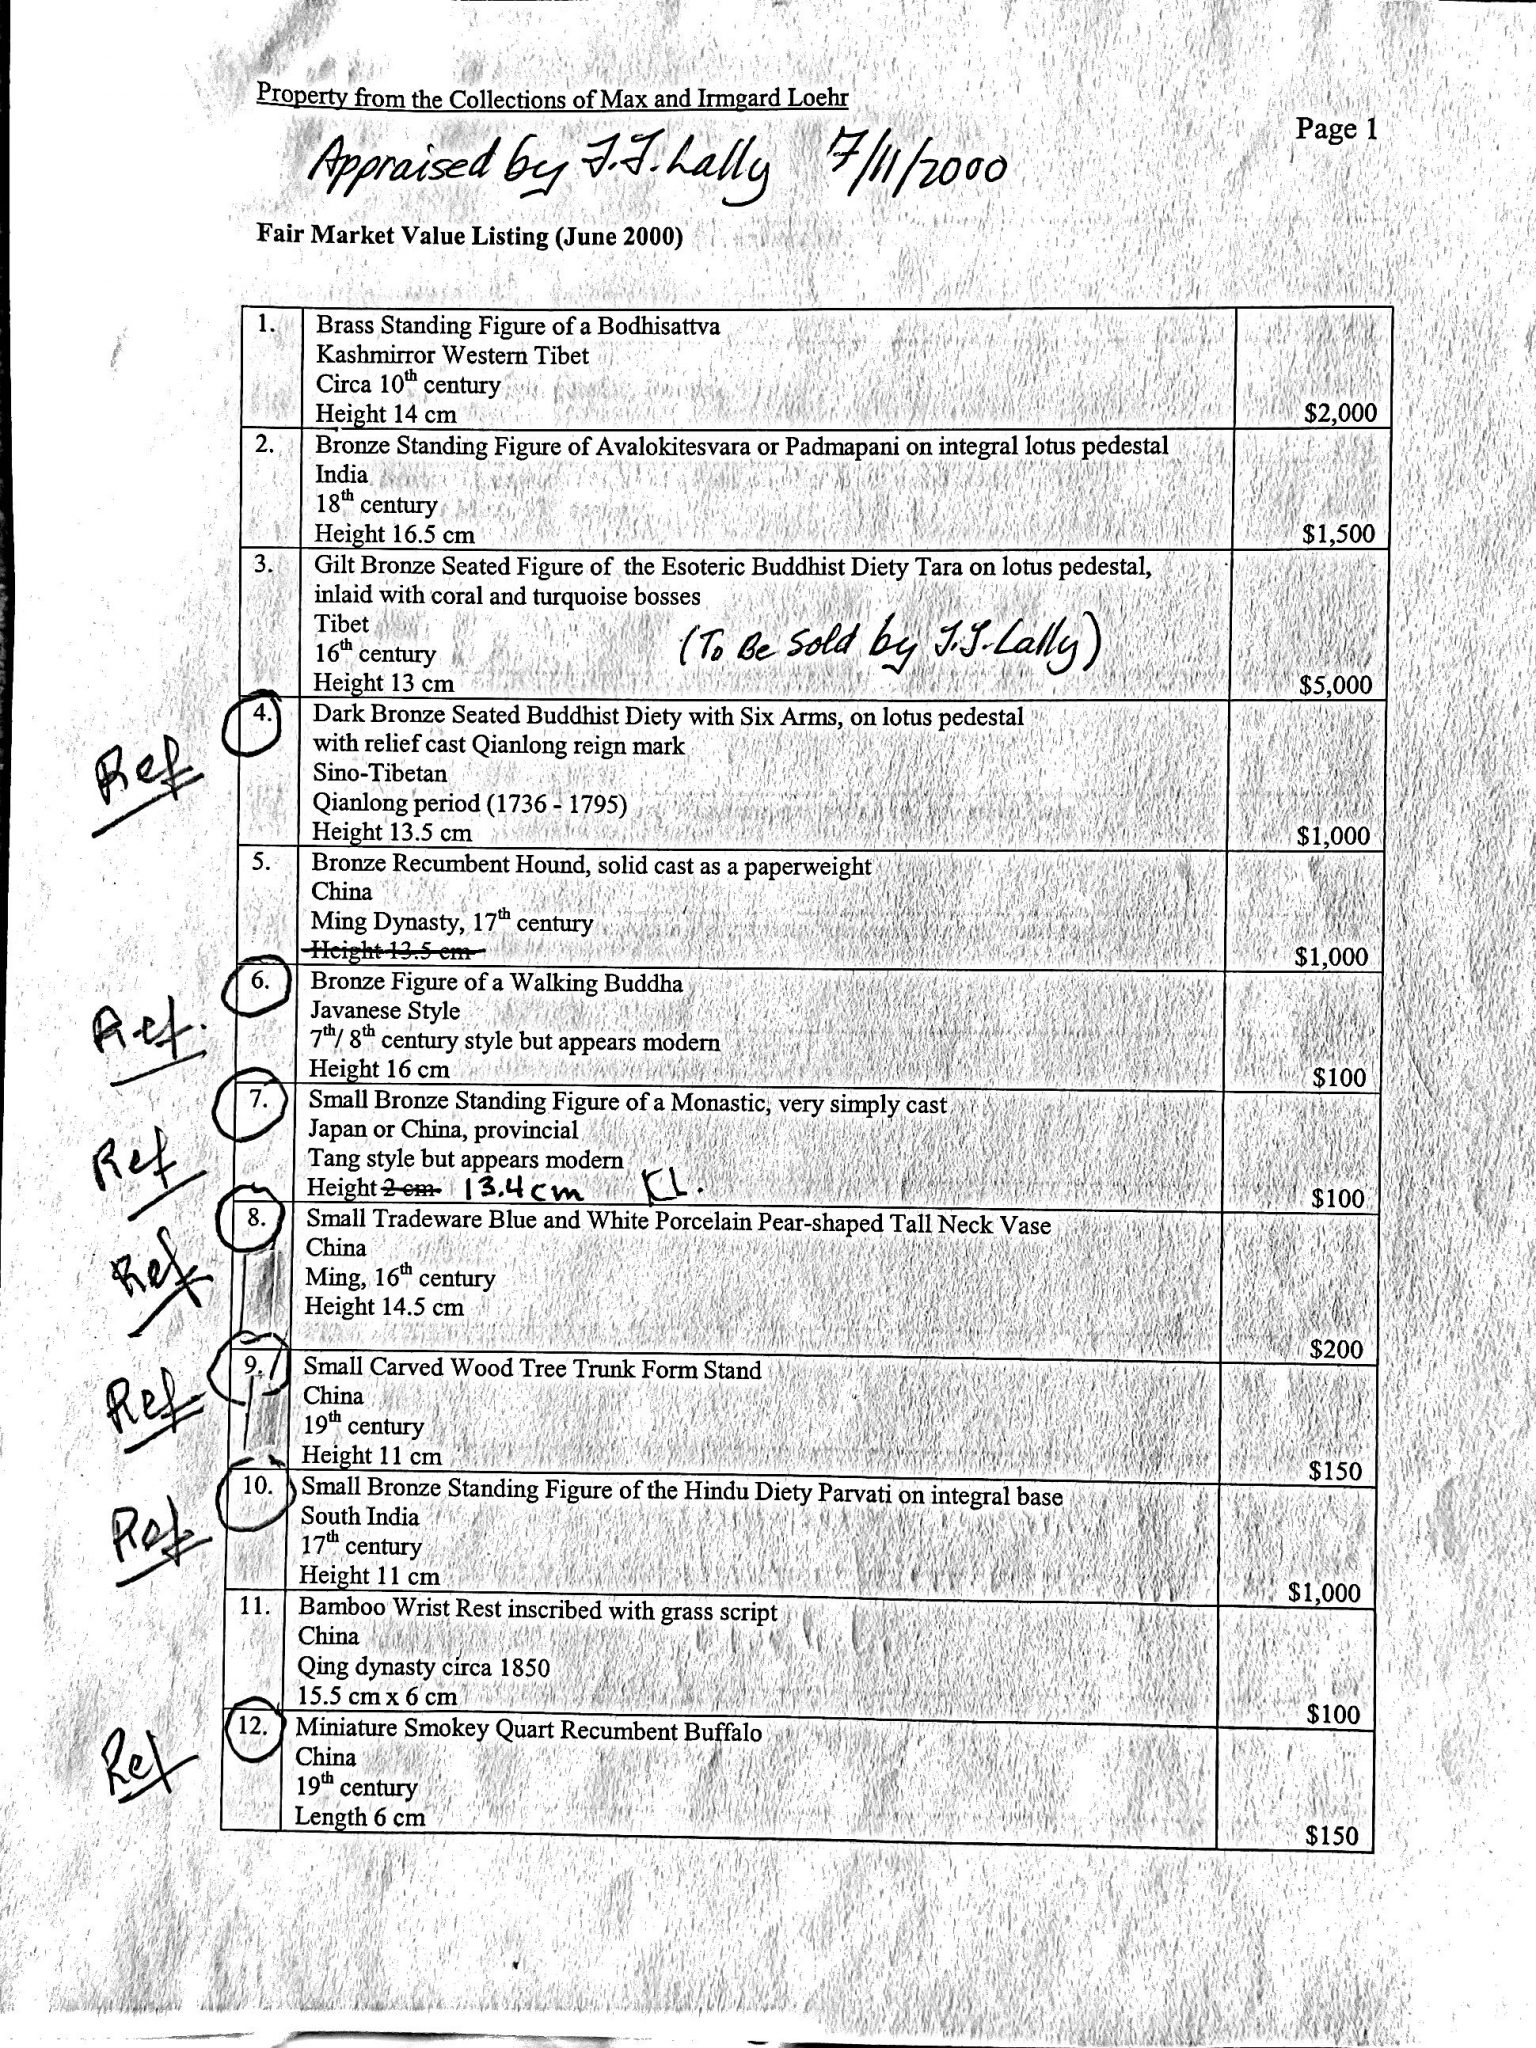 Property from the Collections of Max and Irmgard Loehr
Page 1
Appraised by J.J. Lally 7/11/2000
Fair Market Value Listing (June 2000)
1. Brass Standing Figure of a Bodhisattva
Kashmirror Western Tibet
Circa 10th century
Height 14 cm $2,000
2. Bronze Standing Figure of Avalokitesvara or Padmapani on integral lotus pedestal
India
18th century
Height 16.5 cm $1,500
3. Gilt Bronze Seated Figure of the Esoteric Buddhist Diety Tara on lotus pedestal,
inlaid with coral and turquoise bosses
Tibet
16th century (To Be Sold by J.J. Lally)
Height 13 cm $5,000
4. Dark Bronze Seated Buddhist Diety with Six Arms, on lotus pedestal
with relief cast Qianlong reign mark
Ref Sino-Tibetan
Qianlong period (1736 - 1795)
Height 13.5 cm $1,000
5. Bronze Recumbent Hound, solid cast as a paperweight
China
Ming Dynasty, 17th century
Height 13.5 cm $1,000
6. Bronze Figure of a Walking Buddha
Ref. Javanese Style
7th/ 8th century style but appears modern
Height 16 cm $100
7. Small Bronze Standing Figure of a Monastic, very simply cast
Japan or China, provincial
Ref Tang style but appears modern
Height 2 cm 13.4 cm KL. $100
8. Small Tradeware Blue and White Porcelain Pear-shaped Tall Neck Vase
China
Ref Ming, 16th century
Height 14.5 cm
$200
9. Small Carved Wood Tree Trunk Form Stand
Ref China
19th century
Height 11 cm $150
10. Small Bronze Standing Figure of the Hindu Diety Parvati on integral base
South India
Ref 17th century
Height 11 cm $1,000
11. Bamboo Wrist Rest inscribed with grass script
China
Qing dynasty circa 1850
15.5 cm x 6 cm $100
12. Miniature Smokey Quart Recumbent Buffalo
Ref China
19th century
Length 6 cm $150